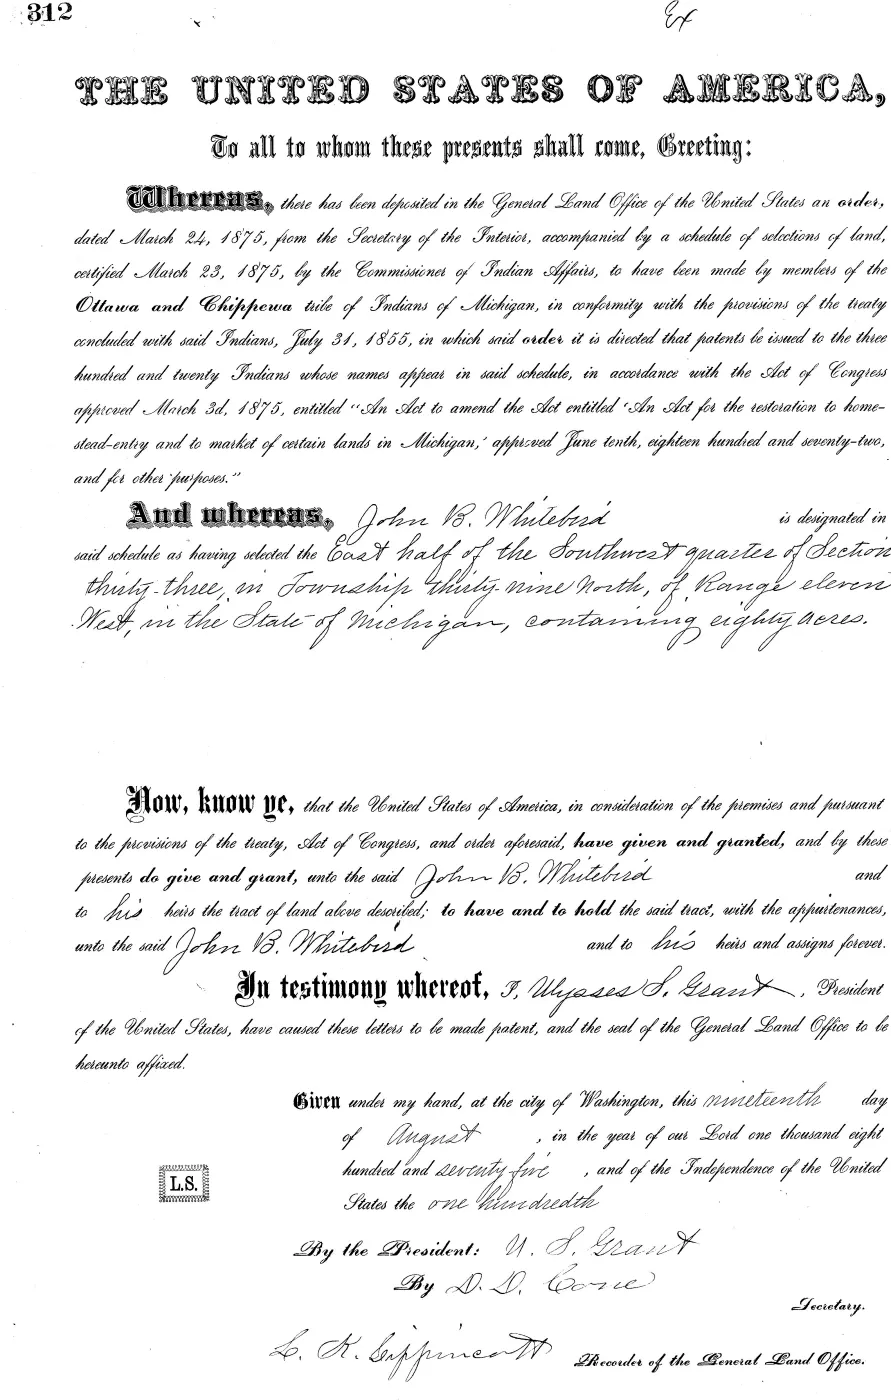 312
Ex
THE UNITED STATES OF AMERICA,
To all to whom these presents shall come, Greeting:
Whereas, there has been deposited in the General Land Office of the United States an order,
dated March 24, 1875, from the Secretary of the Interior, accompanied by a schedule of selections of land,
certified March 23, 1875, by the Commissioner of Indian Affairs, to have been made by members of the
Ottawa and Chippewa tribe of Indians of Michigan, in conformity with the provisions of the treaty
concluded with said Indians, July 31, 1855, in which said order it is directed that patents be issued to the three
hundred and twenty Indians whose names appear in said schedule, in accordance with the Act of Congress
approved March 3d, 1875, entitled "An Act to amend the Act entitled 'An Act for the restoration to home-
stead-entry and to market of certain lands in Michigan,' approved June tenth, eighteen hundred and seventy-two,
and for other purposes."
And whereas, John B. Whitebird is designated in
said schedule as having selected the East half of the Southwest quarter of Section
thirty-three, in Township thirty-nine North, of Range eleven
West, in the State of Michigan, containing eighty acres.
Now, know ye, that the United States of America, in consideration of the premises and pursuant
to the provisions of the treaty, Act of Congress, and order aforesaid, have given and granted, and by these
presents do give and grant, unto the said John B. Whitebird and
to his heirs the tract of land above described; to have and to hold the said tract, with the appurtenances,
unto the said John B. Whitebird and to his heirs and assigns forever.
In testimony whereof, I, Ulysses S. Grant, President
of the United States, have caused these letters to be made patent, and the seal of the General Land Office to be
hereunto affixed.
Given under my hand, at the city of Washington, this nineteenth day
of August, in the year of our Lord one thousand eight
hundred and seventy five, and of the Independence of the United
L.S.
States the one hundredth
By the President: U. S. Grant
By D. D. Cone
Secretary.
L. K. Lippincott
Recorder of the General Land Office.